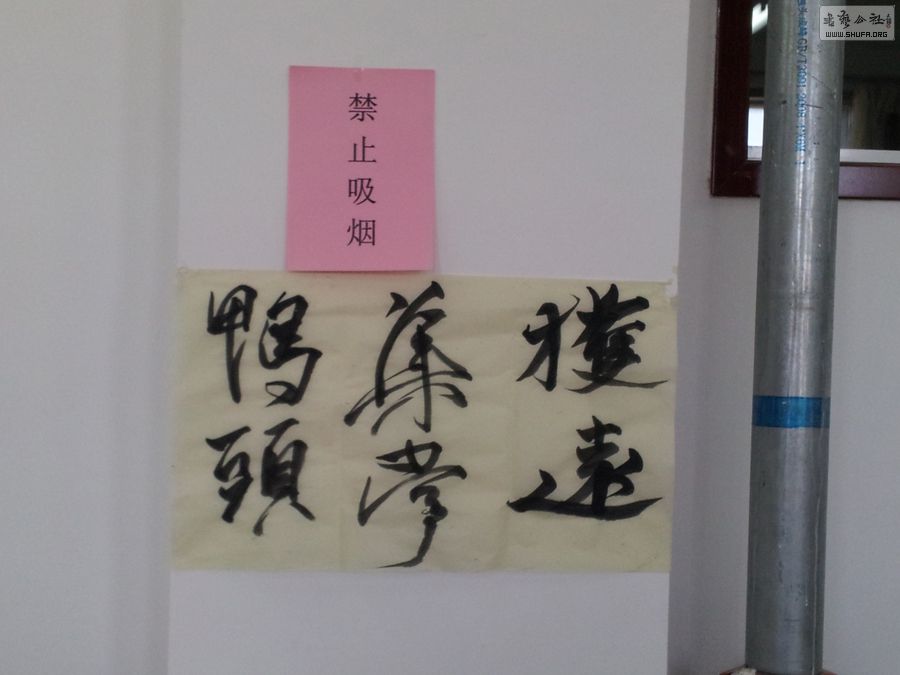 書藝公社
WWW.SHUFA.ORG
禁止吸烟
獲遠
鴨頭
GB/T3091-2008